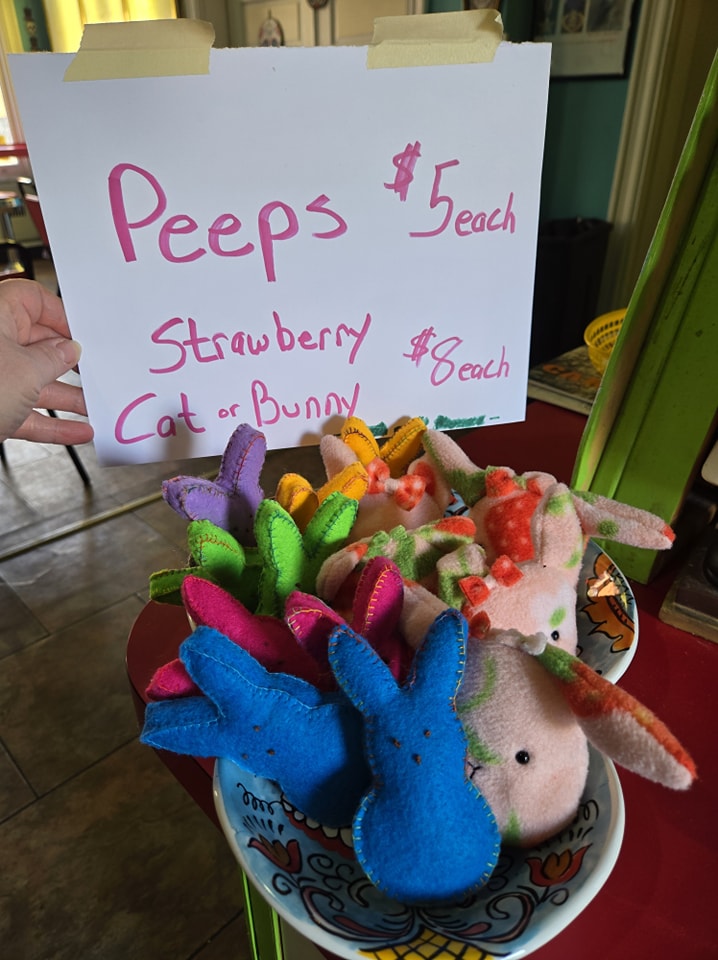 Peeps $5 each
Strawberry $8 each
Cat or Bunny